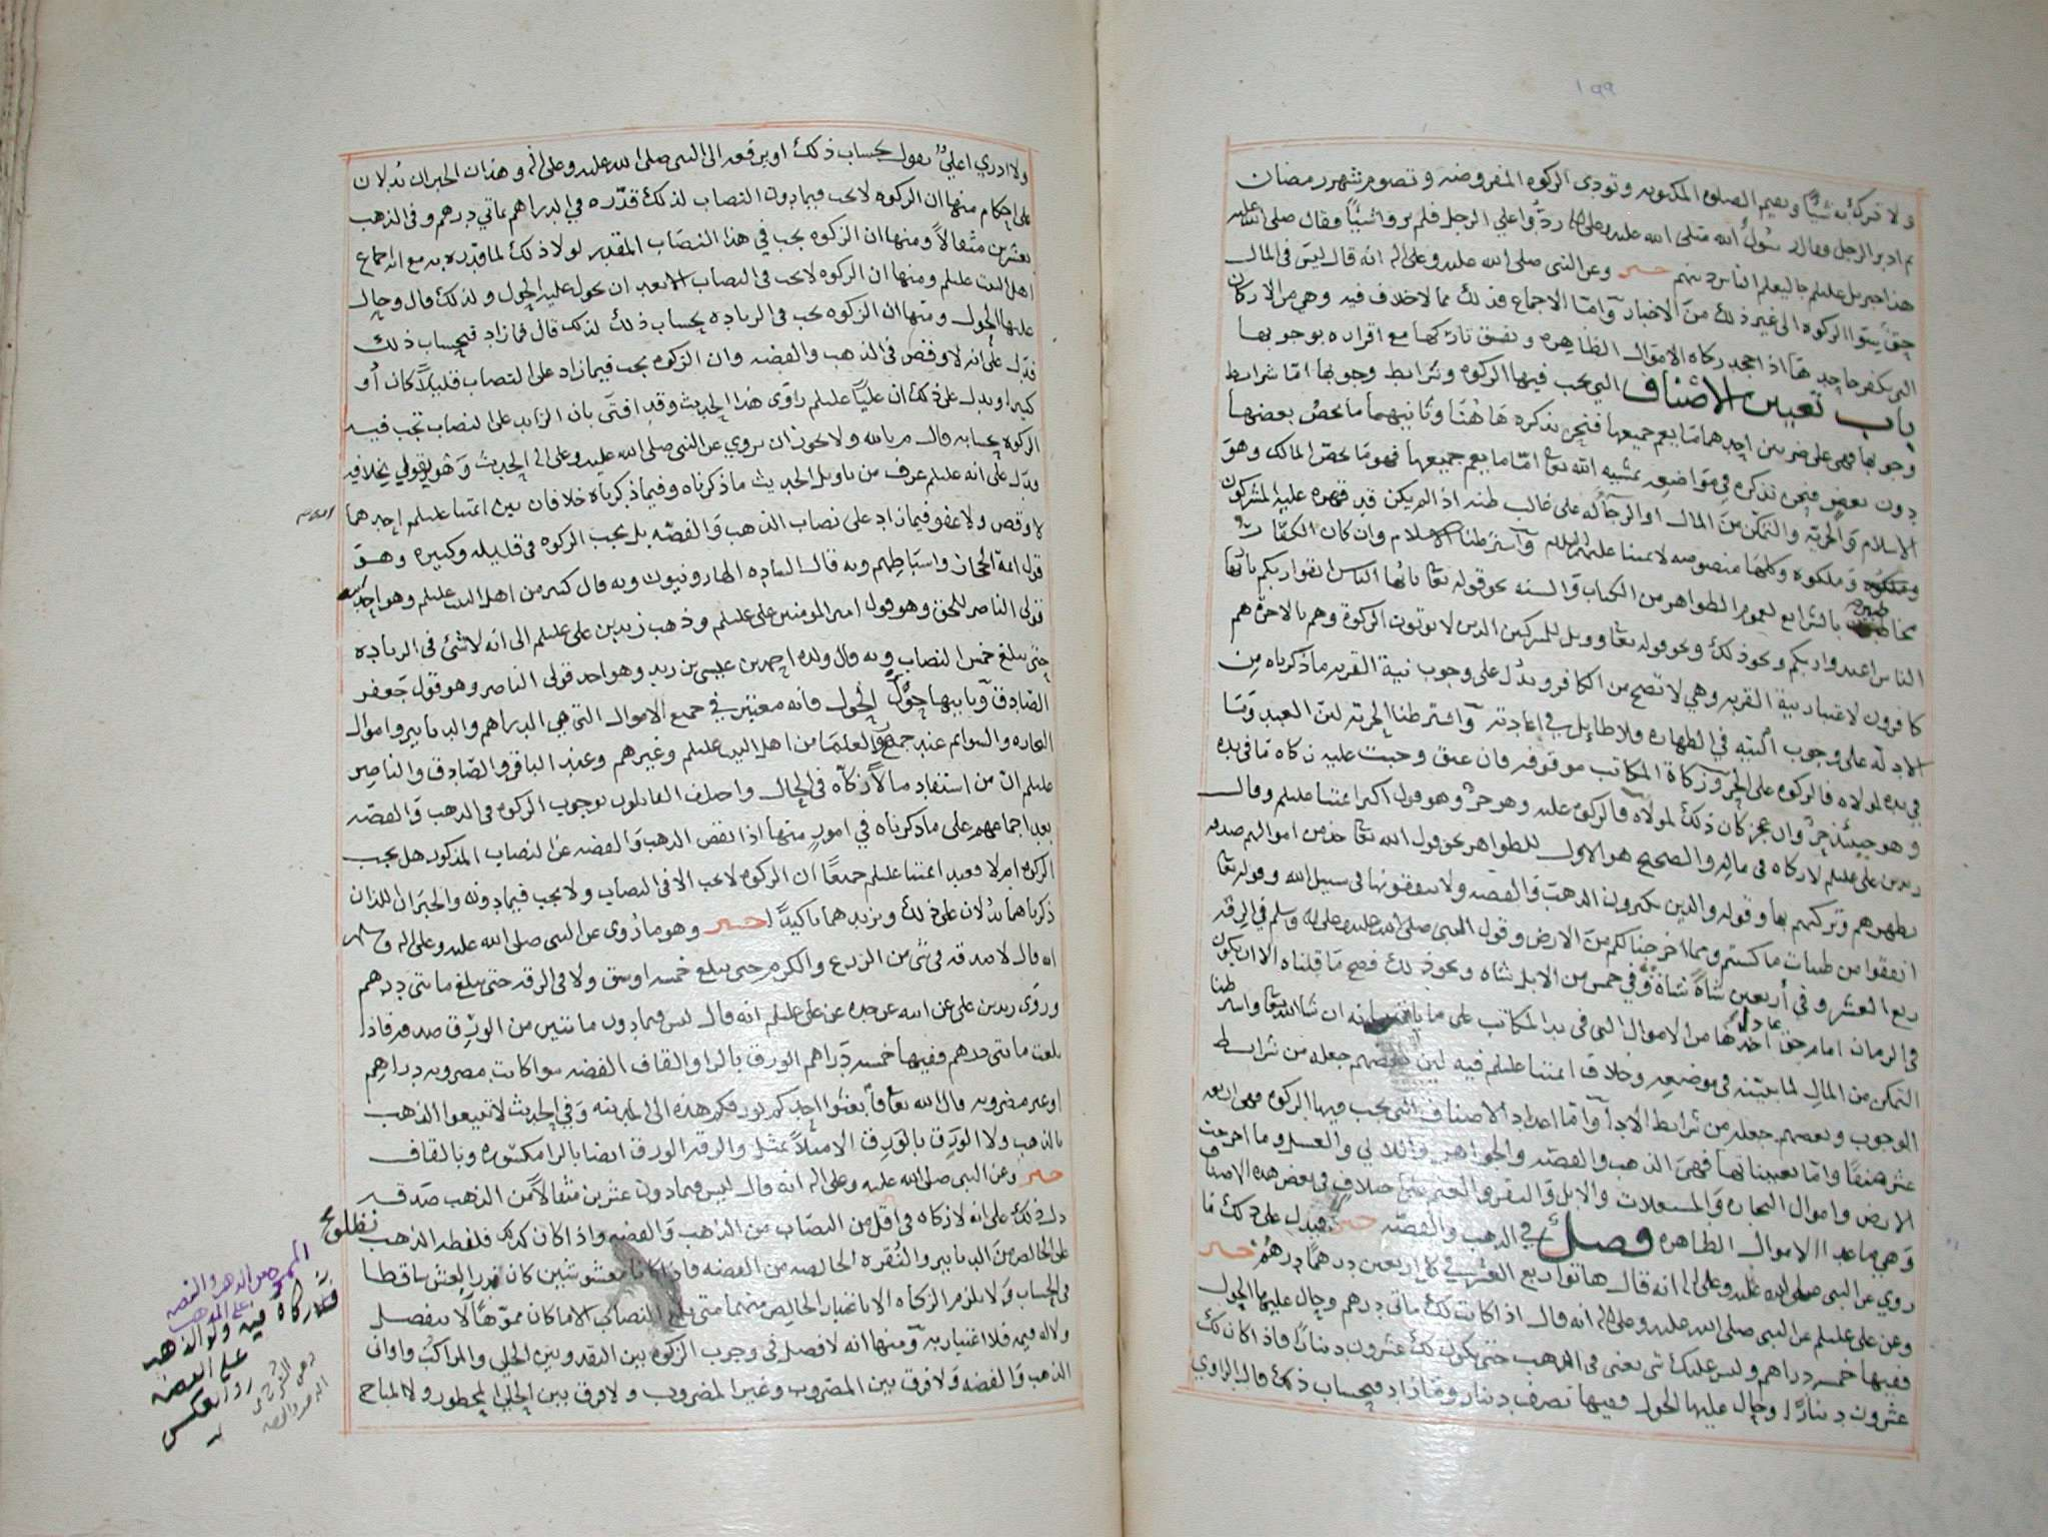 ١٩٩
ولا تشرك به شيئا وتقيم الصلوه المكتوبه وتودي الزكوه المفروضه وتصوم شهر رمضان
ثم ادبر الرجل وقال رسول الله صلى الله عليه وعلى اله ردوا علي الرجل فلم يروا شيئا وقال صلى الله عليه
هذا جبريل عليلم جا ليعلم الناس دينهم خبر وعن النبي صلى الله عليه وعلى اله انه قال ليس في المال
حق سوا الزكوه الى غير ذلك من الاخبار واما الاجماع فذلك مما لا خلاف فيه وهي من الاركان
التي يكفر جاحدها اذا جحد زكاه الاموال الظاهره ويفسق تاركها مع اقراره بوجوبها
باب تعيين الاصناف التي يجب فيها الزكوه وشرايط وجوبها اما شرايط
وجوبها فهي على ضربين احدهما ما يعم جميعها فنحن نذكره هاهنا وثانيهما ما يخص بعضها
دون بعض فنحن نذكره في مواضعه بمشيه الله تعا اما ما يعم جميعها فهو ما يخص المالك وهو
الاسلام والحريه والتمكن من المال او الرجآ له على غالب ظنه اذا لم يكن قد قهره عليه المشركون
وملكوه وكلها منصوصه لايمتنا عليهم السلام واشترطنا الاسلام وان كان الكفار
مخاطبين بالشرايع لعموم الظواهر من الكتاب والسنه نحو قوله تعا يا ايها الناس اتقوا ربكم يا ايها
الناس اعبدوا ربكم ونحو ذلك ونحو قوله تعا وويل للمشركين الذين لا يوتون الزكوة وهم بالاخرة هم
كافرون لاعتبار نية القربه وهي لا تصح من الكافر ويدل على وجوب نية القربه ما ذكرناه من
الادله على وجوب النيه في الطهاره ولا طايل في اعادته واشترطنا الحريه لان العبد وما
في يده لمولاه فالزكوه على الحر وزكاة المكاتب موقوفه فان عتق وجبت عليه زكاه ما في يده
وهو حينئذ حر وان عجز كان ذلك لمولاه فالزكوه عليه وهو حر وهو قول اكثر ايمتنا عليلم وقال
زيد بن علي عليلم لا زكاه في ماله والصحيح هو الاول للظواهر نحو قول الله تعا خذ من اموالهم صدقه
تطهرهم وتزكيهم بها وقوله والذين يكنزون الذهب والفضه ولا ينفقونها في سبيل الله وقوله تعا
انفقوا من طيبات ما كسبتم ومما اخرجنا لكم من الارض وقول النبي صلى الله عليه وعلى اله وسلم في الرقه
ربع العشر وفي اربعين شاة شاة وفي خمس من الابل شاه ونحو ذلك فصح ما قلناه الا ان يكون
في الزمان امام حق عادل اخذها من الاموال التي في يد المكاتب على ما يانه ان شا الله تعا واشترطنا
التمكن من المال لما نبينه في موضعه وخلاف ايمتنا عليلم فيه لان بعضهم جعله من شرايط
الوجوب وبعضهم جعله من شرايط الادآ واما اعداد الاصناف التي يجب فيها الزكوه فهي اربعه
عشر صنفا واما تعييناتها فهي الذهب والفضه والجواهر واللالي والعسل وما اخرجت
الارض واموال التجاره والمستغلات والابل والبقر والغنم على خلاف في بعض هذه الاصناف
وهي ما عدا الاموال الظاهره فصل في الذهب والفضه خبر ويدل على ذلك ما
روي عن النبي صلى الله عليه وعلى اله انه قال هاتوا ربع العشر في كل اربعين درهما درهم خبر
وعن علي عليلم عن النبي صلى الله عليه وعلى اله انه قال اذا كانت لك مائتي درهم وحال عليها الحول
ففيها خمسه دراهم وليس عليك شي يعني في الذهب حتى يكون لك عشرون دينارا فاذا كان لك
عشرون دينارا وحال عليها الحول ففيها نصف دينار وما زاد فبحساب ذلك قال الراوي
ولا ادري اعلي يقول بحساب ذلك او يرفعه الى النبي صلى الله عليه وعلى اله وهذان الخبران يدلان
على احكام منها ان الزكوه لا يجب فيما دون النصاب لذلك قدره في الدراهم بماتي درهم وفي الذهب
بعشرين مثقالا ومنها ان الزكوه يجب في هذا النصاب المقدر لولا ذلك لما قدره به مع انه اجماع
اهل البيت عليلم ومنها ان الزكوه لا يجب في النصاب الا بعد ان يحول عليه الحول ولذلك قال وحال
عليها الحول ومنها ان الزكوه يجب في الزياده بحساب ذلك لذلك قال فما زاد فبحساب ذلك
فدل على انه لا وقص في الذهب والفضه وان الزكوه يجب فيما زاد على النصاب قليلا كان او
كثيرا ويدل على ذلك ان عليا عليلم راوي هذا الحديث وقد افتى بان الزايد على النصاب تجب فيه
الزكوه بحسابه قال م بالله ولا يجوز ان يروي عن النبي صلى الله عليه وعلى اله الحديث وهو يقول بخلافه
فدل على انه عليلم عرف من تاويل الحديث ما ذكرناه وفيما ذكرناه خلافان بين ايمتنا عليلم احدهما
لا وقص ولا عفو فيما زاد على نصاب الذهب والفضه بل يجب الزكوه في قليله وكثيره وهو
قول ايمة الحجاز واسباطهم وبه قال الساده الهارونيون وبه قال كثير من اهل البيت عليلم وهو احد
قولي الناصر للحق وهو قول امير المومنين علي عليلم وذهب زيد بن علي عليلم الى انه لا شئ في الزياده
حتى يبلغ خمس النصاب وبه قال ولده احمد بن عيسى بن زيد وهو احد قولي الناصر وهو قول جعفر
الصادق وثانيها حول الحول فانه معتبر في جميع الاموال التي هي الدراهم والدنانير واموال
التجاره والسوايم عند جميع العلما من اهل البيت عليلم وغيرهم وعند الباقر والصادق والناصر
عليلم ان من استفاد مالا زكاه في الحال واختلف القايلون بوجوب الزكوه في الذهب والفضه
بعد اجماعهم على ما ذكرناه في امور منها اذا نقص الذهب والفضه عن النصاب المذكور هل يجب
الزكوه ام لا فعند ايمتنا عليلم جميعا ان الزكوه لا يجب الا في النصاب ولا يجب فيما دونه والخبران اللذان
ذكرناهما يدلان على ذلك ويزيدهما تاكيدا خبر وهو ما روي عن النبي صلى الله عليه وعلى اله وسلم
انه قال لا صدقه في شي من الزرع والكرم حتى يبلغ خمسه اوسق ولا في الرقه حتى يبلغ مائتي درهم
وروى زيد بن علي عن ابيه عن جده عن علي عليلم انه قال ليس فيما دون مائتين من الورق صدقه فاذا
بلغت مائتي درهم ففيها خمسه دراهم الورق بالرا والقاف الفضه سوا كانت مضروبه دراهم
او غير مضروبه قال الله تعا فابعثوا احدكم بورقكم هذه الى المدينه وفي الحديث لا تبيعوا الذهب
بالذهب ولا الورق بالورق الا مثلا بمثل والرقه الورق ايضا بالرا مكسوره وبالقاف
خبر وعن النبي صلى الله عليه وعلى اله انه قال ليس فيما دون عشرين مثقالا من الذهب صدقه
دل ذلك على انه لا زكاه في اقل من النصاب من الذهب والفضه واذا كان كذلك فلفظه الذهب تطلق
على الخالص من الدنانير والنقره الخالصه من الفضه فاذا كانا مغشوشين كان قدر الغش ساقطا
في الحساب ولا يلزم الزكاه الا باعتبار الخالص منهما متى بلغ النصاب الا ما كان مموها لا ينفصل
ولا له قيمه فلا اعتبار به ومنها انه لا فصل في وجوب الزكوه بين النقد وبين الحلي والمراكب واواني
الذهب والفضه ولا فرق بين المضروب وغير المضروب ولا فرق بين الحلي المحظور ولا المباح
المموه من الذهب والفضه
على المذهب
فلا زكاه فيه ولو الذهب
على الفضه